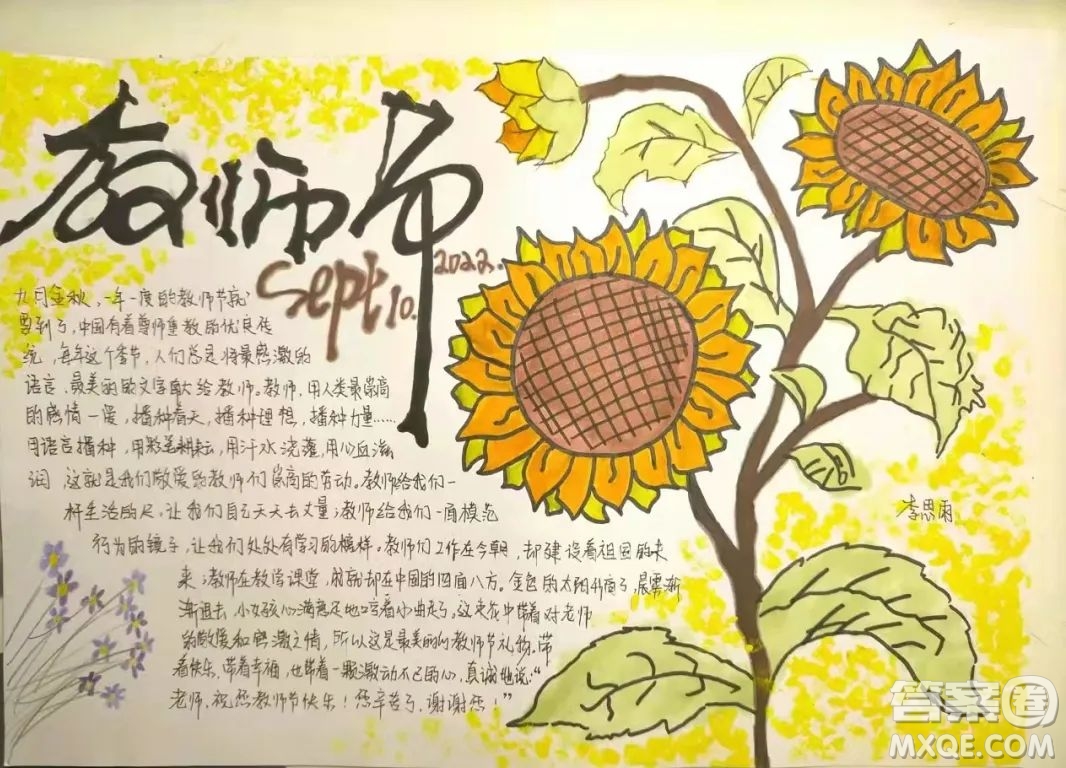 教师节
Sept 10.
2022.
九月金秋,一年一度的教师节就
要到了,中国有着尊师重教的优良传
统,每年这个季节,人们总是将最感激的
语言、最美丽的文字献给教师。教师,用人类最崇高
的感情一爱,播种春天,播种理想,播种力量……
用语言播种,用彩笔耕耘,用汗水浇灌,用心血滋
润,这就是我们敬爱的教师们崇高的劳动。教师给我们一
杆生活的尺,让我们自己天天去丈量;教师给我们一面模范
行为的镜子,让我们处处有学习的榜样。教师们工作在今朝,却建设着祖国的未
来;教师在教学课堂,成就却在中国的四面八方。金色的太阳升高了,晨雾渐
渐退去,小女孩心满意足地哼着小曲走了。这束花中带着对老师
的敬爱和感激之情,所以这是最美的教师节礼物,带
着快乐,带着幸福,也带着一颗激动不已的心,真诚地说:“
老师,祝您教师节快乐!您辛苦了,谢谢您!”
李思雨
答案圈
MXQE.COM